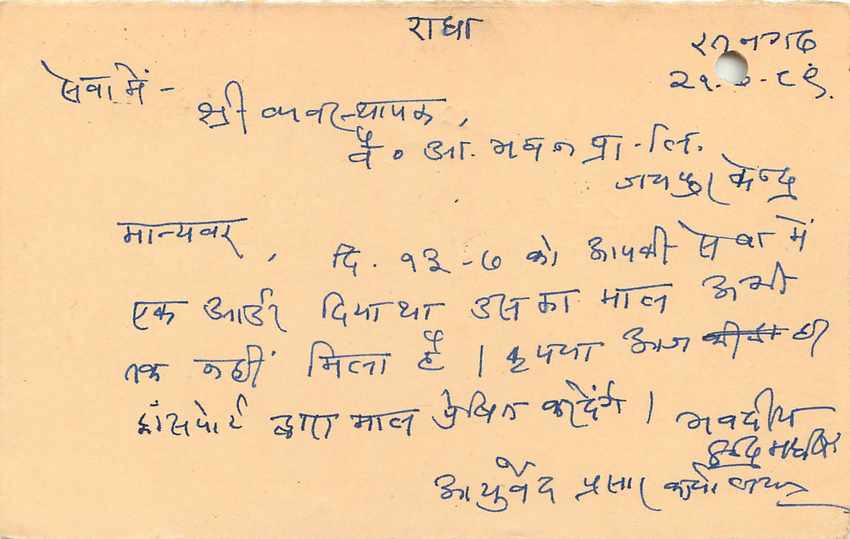 राधा
रतनगढ
२१. ७-८९.
सेवा में -
श्री व्यवस्थापक,
वै० आ. भवन प्रा. लि.
जयपुर केन्द्र
मान्यवर,
दि. १३-७ को आपकी सेवा में
एक आर्डर दिया था उसका माल अभी
तक नहीं मिला है । कृपया आज ही
ट्रांसपोर्ट द्वारा माल प्रेषित करदेंगे ।
भवदीय
आयुर्वेद प्रसार कार्यालय